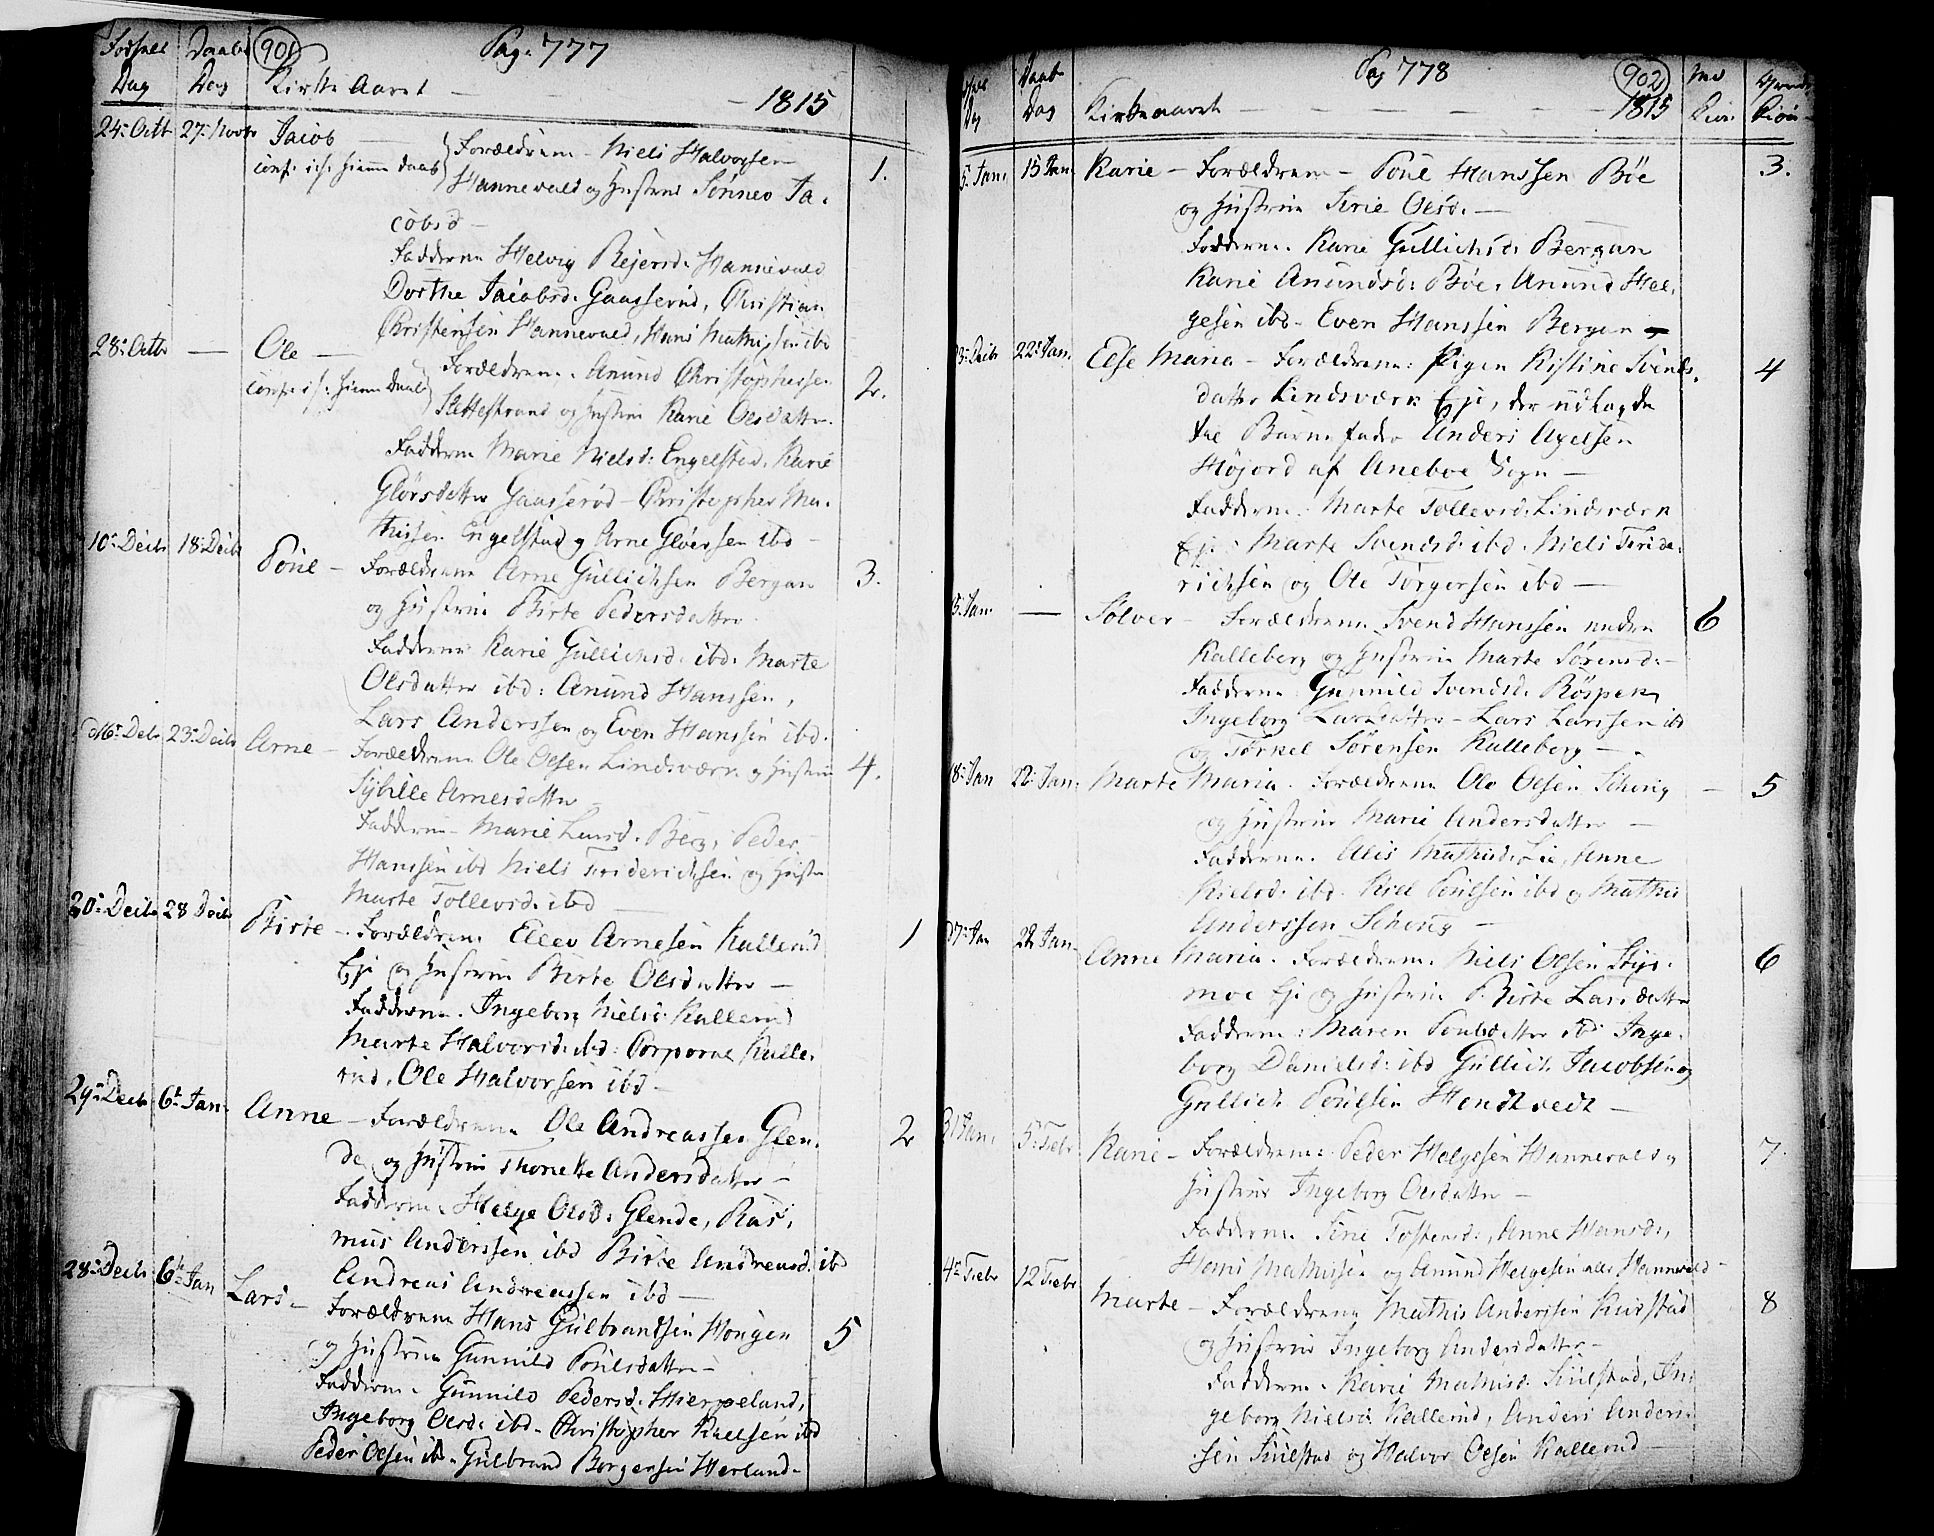 Fødsels Daabs 901 Pag. 777
Dag Dag Kirke Aaret — — 1815
24: Octb 27: Novb Jacob Forældrene — Niels Halvorsen 1.
conf. hiemmedaab Hannevald og Hustrue Tønnes Ja-
cobsd —
Fadderne Helvig Rejersd: Hannevald
Dorthe Jacobsd: Gaasserud, Christian
Christensen Hannevald, Hans Mathissen ibd
28: Octb — Ole — Forældrene. Anund Christophersen 2.
conf. hiemmedaab Slettestrand og Hustrue Karie Olsdatter.
Fadderne Marie Nielsd: Engelstad, Karie
Glørsdatter Gaasserød — Christopher Ma-
thissen Engelstad og Arne Gløersen ibd —
10: Decbr 18: Decbr Poul — Forældrene Arne Gullichsen Bergan 3.
og Hustrue Birte Pedersdatter.
Fadderne Karie Gullichsd: ibd: Marte
Olsdatter ibd: Anund Hanssen,
Lars Anderssen og Even Hanssen ibd.
16: Decbr 23: Decbr Arne — Forældrene Ole Olsen Lindsværk og Hustrue 4.
Sybille Arnesdatter —
Fadderne — Marie Larsd. Berg, Peder
Hanssen ibd Niels Friderichsen og Hustrue
Marte Tollevsd: ibd —
20: Decbr 28 Decbr Birte — Forældrene Ellev Arnesen Kallerud 1
Eje og Hustrue Birte Olsdatter —
Fadderne. Ingeborg Nielsd: Kallerud
Marte Halvorsd: ibd: Kalle-
rud, Ole Halvorsen ibd —
29: Decbr 6t Jan. Anne — Forældrene Ole Andreassen Glen- 2
de, og Hustrue Thonette Andersdatter —
Fadderne. Helge Olsd: Glende, Ras-
mus Anderssen ibd Birte Andreasd: ibd
Andreas Andreassen ibd —
28: Decbr 6t Jan Lars — Forældrene Hans Gulbrandsen Hougen 5
og Hustrue Gunnild Poulsdatter —
Fadderne. Gunnild Pedersd: Hierpeland,
Ingeborg Olsd: ibd. Christopher Kielsen ibd
Peder Olsen ib. Gulbrand Borgersen Herland.
Daab Pag 778 902
Dag Dag Kirkeaaret — — — — 1815
5. Jan. 15 Jan. Karie — Forældrene — Poul Hanssen Bøe 3.
og Hustrue Sirie Olsd. —
Fadderne. Karie Gullichsd: Bergan
Karie Anundsd: Bøe, Anund Hel-
gesen ibd. Even Hanssen Bergan —
Decbr 22: Jan. Else Maria — Forældrene: Pigen Kistine Svends- 4
datter Lindsværk Eje, der udlagde
til Barnefader Anders Axelsen
Højord af Aneboe Sogn —
Fadderne. Marte Tollevsd: Lindsværk
Eje: Marte Svendsd: ibd. Niels Fride-
richsen og Ole Torgersen ibd —
Jan. — Sølver — Forældrene Svend Hanssen nedre 6
Kalleberg og Hustrue Marte Sørensd: —
Fadderne: Gunnild Svendsd: Røspen
Ingeborg Larsdatter — Lars Larssen ib
og Tørkel Sørensen Kalleberg —
18: Jan 22: Jan. Marte Maria. Forældrene Ole Olsen — 5
og Hustrue Marie Andersdatter —
Fadderne. Alis Mathisd: Lie, Anne
Kielsd: ibd. Kiel Poulsen ibd og Mathis
Anderssen —
17: Jan 22 Jan. Anne Maria. Forældrene. Niels Olsen 6
moe Eje og Hustrue Birte Larsdatter
Fadderne: Maren Poulsdatter ibd Inge-
borg Danielsd: ibd Gullich Jacobsen og
Gullich Poulsen Hendtvedt —
31 Jan. 5: Febr Karie — Forældrene Peder Helgesen Hannevald og 7.
Hustrue Ingeborg Olsdatter —
Fadderne. Sirie Tostensd:, Anne Hansd:,
Hans Mathissen og Anund Helgesen alle Hannevald —
4: Febr 12 Febr Marte — Forældrene Mathis Anderssen Kulstad 8
og Hustrue Ingeborg Andersdatter —
Fadderne. Karie Mathisd: Kulstad, In-
geborg Nielsd: Kallerud, Anders Anders-
sen Kulstad og Halvor Olsen Kallerud —